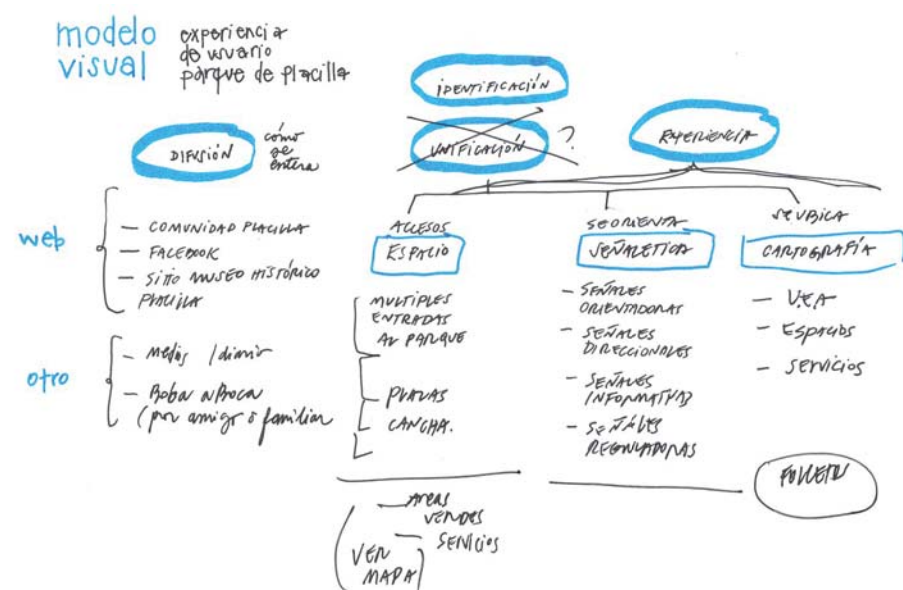 modelo
visual
experiencia
de usuario
parque de placilla
IDENTIFICACIÓN
UNIFICACIÓN
?
EXPERIENCIA
DIFUSIÓN
cómo
se
entera
web
— COMUNIDAD PLACILLA
— FACEBOOK
— SITIO MUSEO HISTÓRICO
PLACILLA
otro
— medios / diario
— Boba a Boca
(por amigo o familiar
ACCESOS
ESPACIO
MULTIPLES
ENTRADAS
AL PARQUE
— PLAZAS
CANCHA.
SE ORIENTA
SEÑALETICA
— SEÑALES
ORIENTADORAS
— SEÑALES
DIRECCIONALES
— SEÑALES
INFORMATIVAS
— SEÑALES
REGULADORAS
SE UBICA
CARTOGRAFÍA
— V.E.A
— ESPACIOS
— SERVICIOS
FOLLETO
— AREAS
VERDES
— SERVICIOS
VER
MAPA